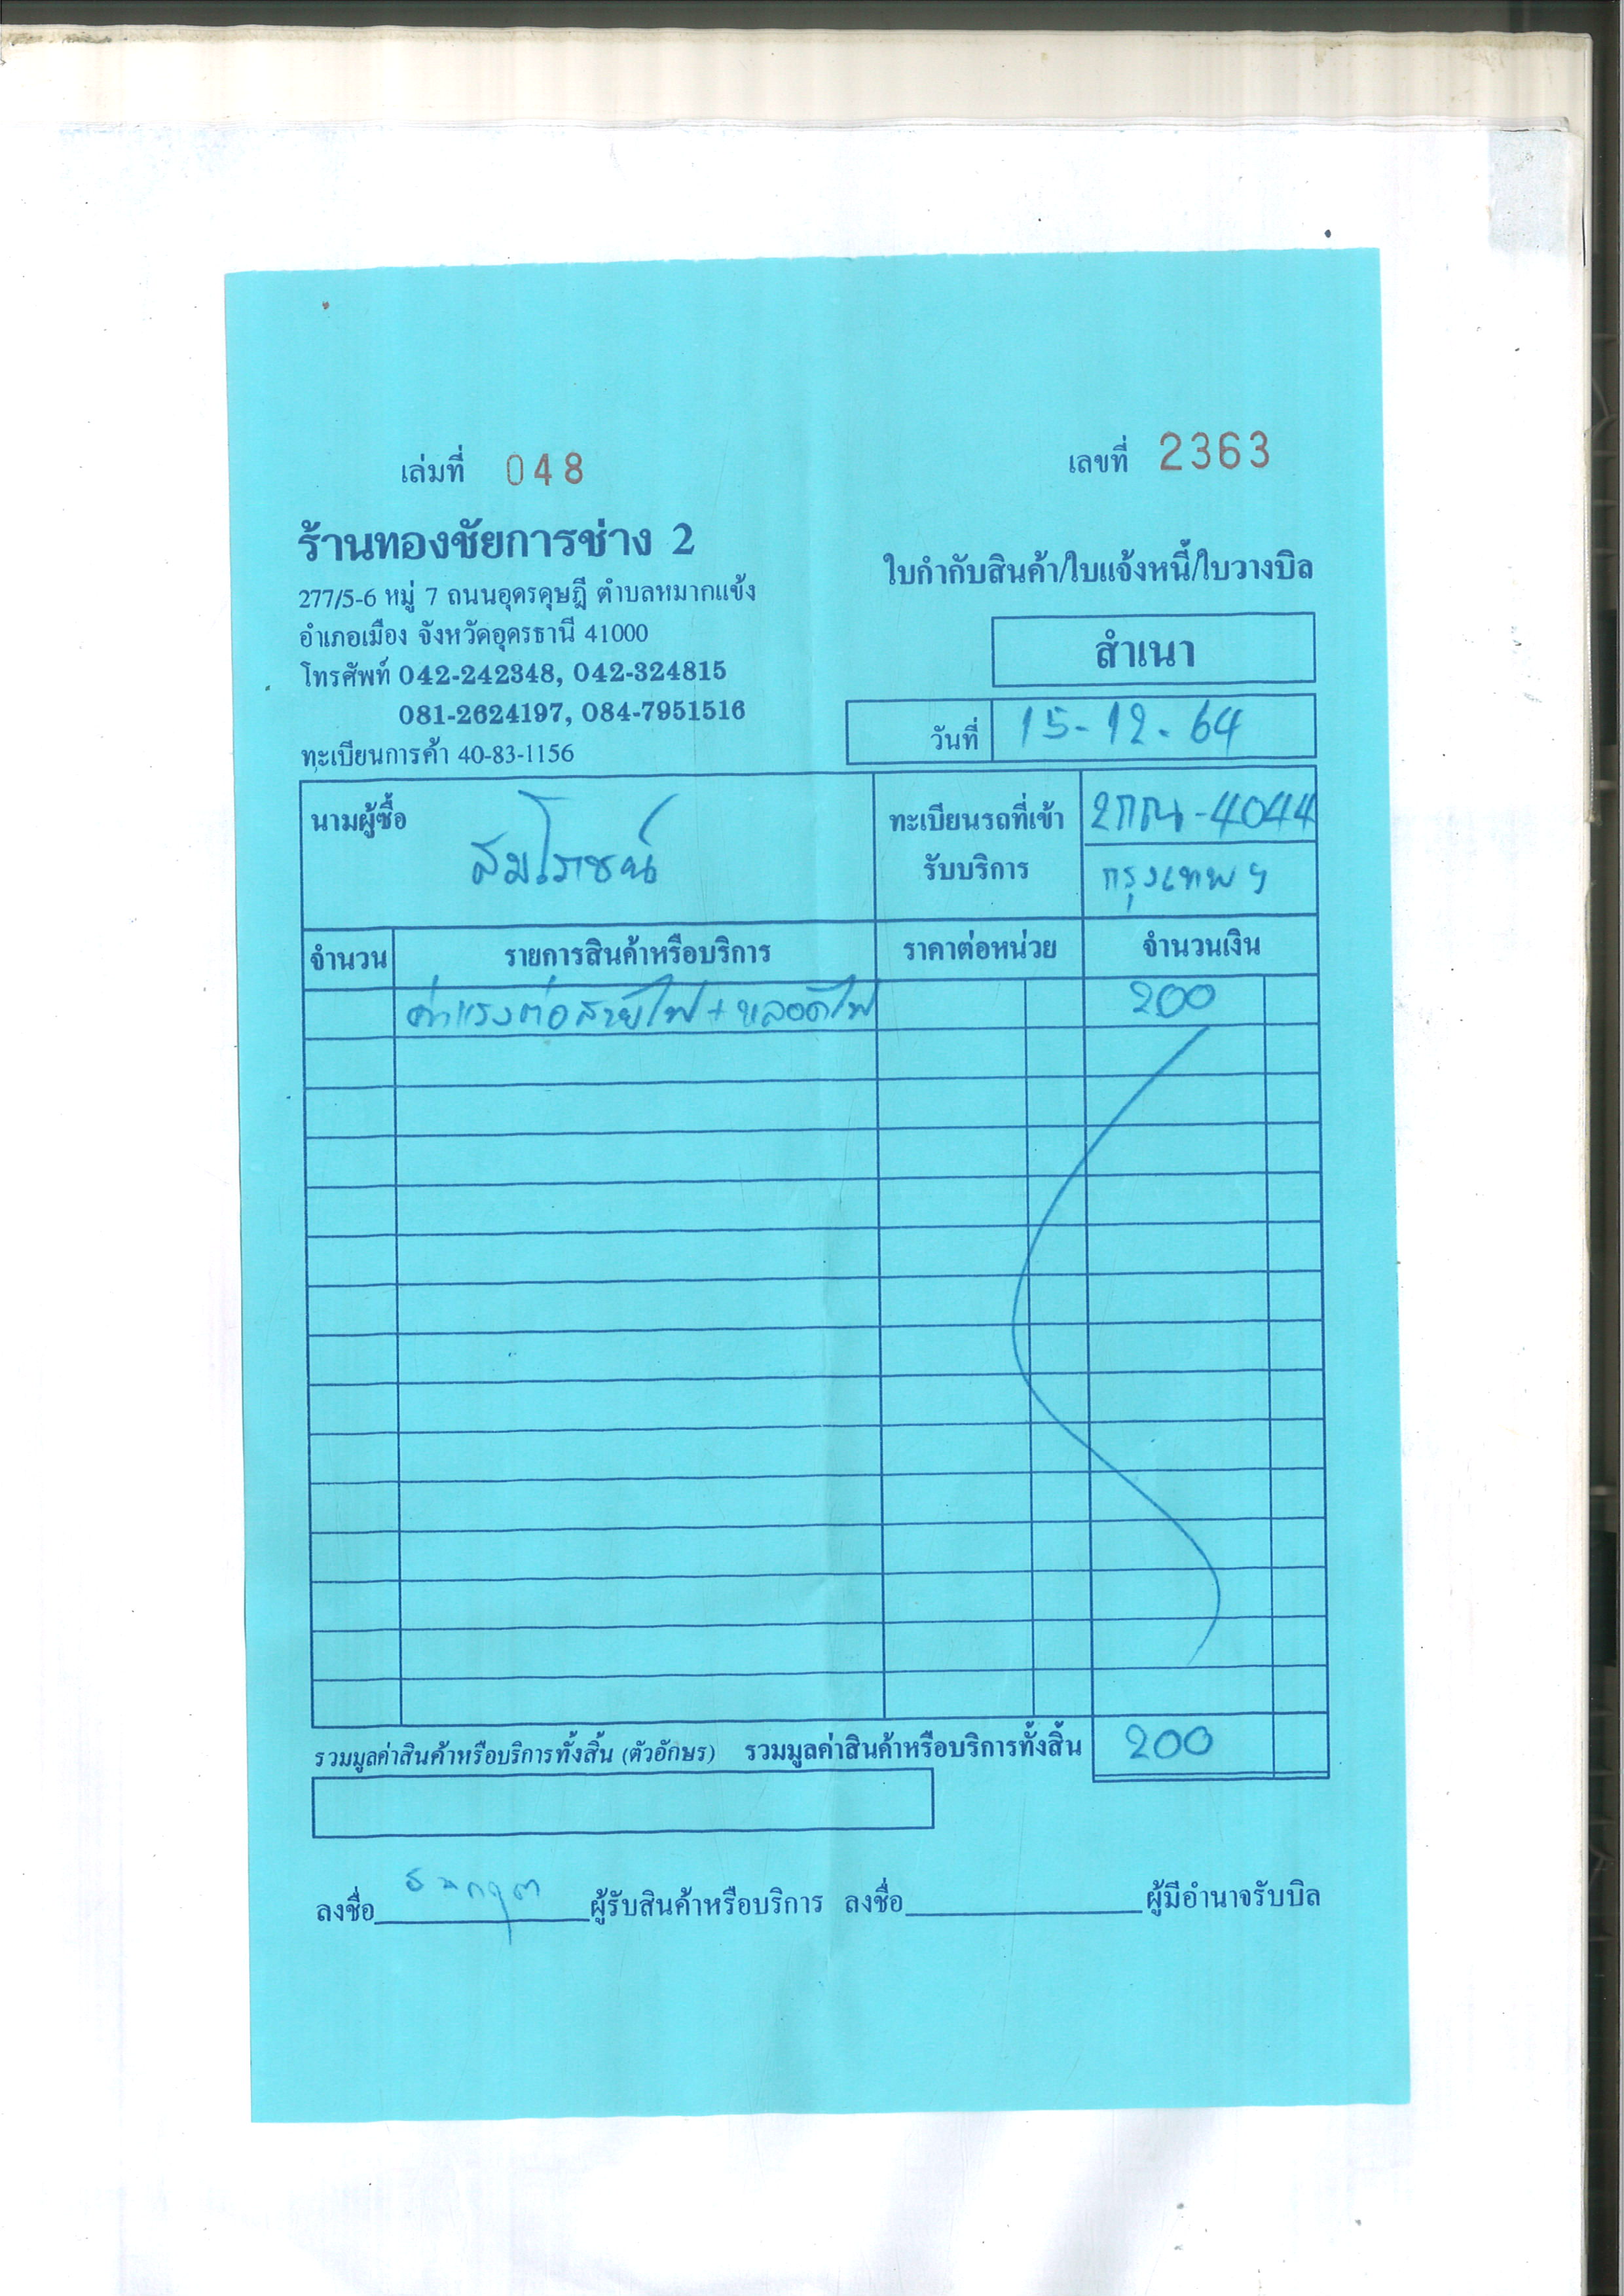 เล่มที่ 048
เลขที่ 2363
ร้านทองชัยการช่าง 2
277/5-6 หมู่ 7 ถนนอุดรดุษฎี ตำบลหมากแข้ง
อำเภอเมือง จังหวัดอุดรธานี 41000
โทรศัพท์ 042-242348, 042-324815
081-2624197, 084-7951516
ทะเบียนการค้า 40-83-1156
ใบกำกับสินค้า/ใบแจ้งหนี้/ใบวางบิล
สำเนา
วันที่ 15-12-64
นามผู้ซื้อ
สมโรชน์
ทะเบียนรถที่เข้า
รับบริการ
2กณ-4044
กรุงเทพฯ
จำนวน รายการสินค้าหรือบริการ ราคาต่อหน่วย จำนวนเงิน
ค่าแรงต่อสายไฟ+หลอดไฟ 200
รวมมูลค่าสินค้าหรือบริการทั้งสิ้น (ตัวอักษร) รวมมูลค่าสินค้าหรือบริการทั้งสิ้น 200
ลงชื่อ ผู้รับสินค้าหรือบริการ ลงชื่อ ผู้มีอำนาจรับบิล